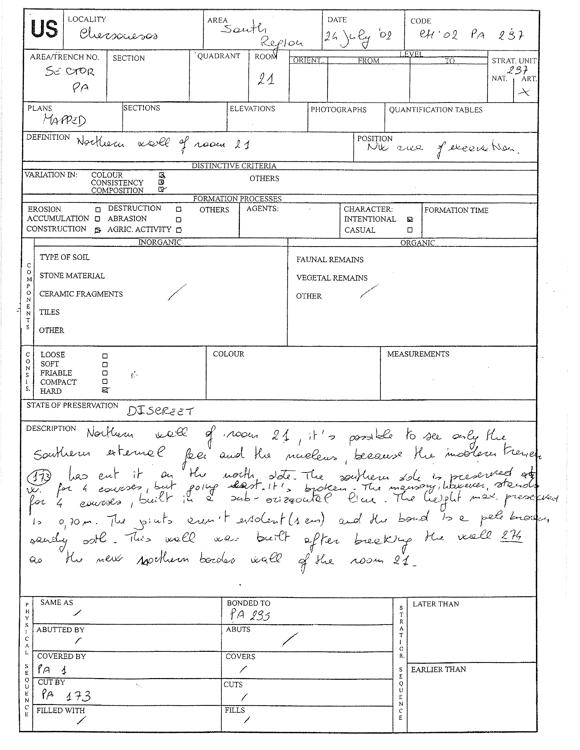 US
LOCALITY
Chersonesos
AREA
South
Region
DATE
24 July '02
CODE
CH'02 PA 237
AREA/TRENCH NO.
SECTOR
PA
SECTION
QUADRANT
ROOM
21
LEVEL
ORIENT.
FROM
TO
STRAT. UNIT
237
NAT.
ART.
X
PLANS
MAPPED
SECTIONS
ELEVATIONS
PHOTOGRAPHS
QUANTIFICATION TABLES
DEFINITION Northern wall of room 21
POSITION
NW area of excavation.
DISTINCTIVE CRITERIA
VARIATION IN:
COLOUR
CONSISTENCY
COMPOSITION
OTHERS
FORMATION PROCESSES
EROSION
DESTRUCTION
ACCUMULATION
ABRASION
CONSTRUCTION
AGRIC. ACTIVITY
OTHERS
AGENTS:
CHARACTER:
INTENTIONAL
CASUAL
FORMATION TIME
COMPONENTS
INORGANIC
TYPE OF SOIL
STONE MATERIAL
CERAMIC FRAGMENTS /
TILES
OTHER
ORGANIC
FAUNAL REMAINS
VEGETAL REMAINS
OTHER /
CONSIS.
LOOSE
SOFT
FRIABLE
COMPACT
HARD
COLOUR
MEASUREMENTS
STATE OF PRESERVATION DISCREET
DESCRIPTION Northern wall of room 21, it's possible to see only the
southern external face and the nucleus, because the modern trench
173 has cut it on the north side. The southern side is preserved at
w. for 4 courses, but going east it's broken. The masonry, however, stands
for 4 courses, built in a sub-orizontal line. The height max. preserved
is 0,70 m. The joints aren't evident (1 cm) and the bond is a pale brown
sandy soil. This wall was built after breaking the wall 274
as the new northern border wall of the room 21.
PHYSICAL SEQUENCE
SAME AS
/
BONDED TO
PA 235
ABUTTED BY
/
ABUTS
/
COVERED BY
PA 1
COVERS
/
CUT BY
PA 173
CUTS
/
FILLED WITH
/
FILLS
/
STRATIGR. SEQUENCE
LATER THAN
EARLIER THAN